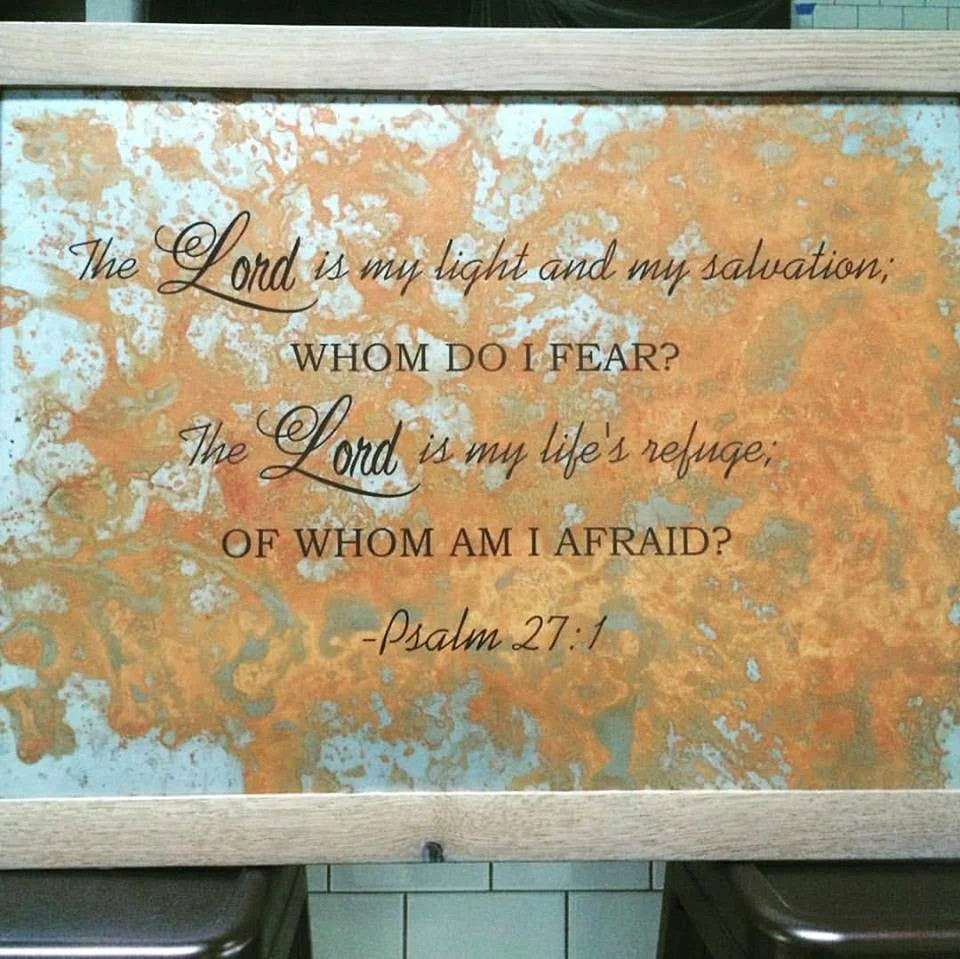 The Lord is my light and my salvation;
WHOM DO I FEAR?
The Lord is my life's refuge;
OF WHOM AM I AFRAID?
-Psalm 27:1